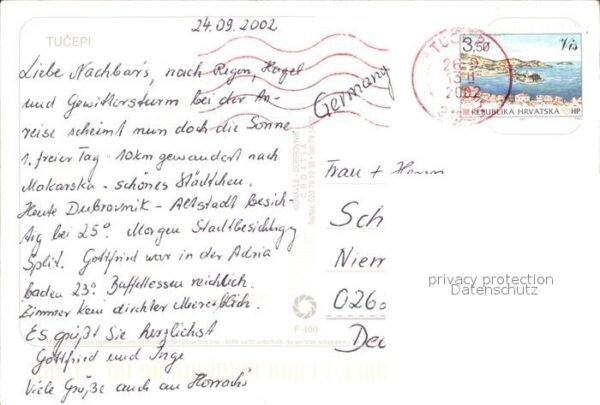 24.09.2002
TUČEPI
Liebe Nachbar's, nach Regen, Hagel
und Gewittersturm bei der An-
reise scheint nun doch die Sonne
1. freier Tag - 10 km gewandert nach
Makarska - schönes Städtchen.
Heute Dubrovnik - Altstadt besich-
tig bei 25°. Morgen Stadtbesichtigg
Split. Gottfried war in der Adria
baden 23°. Buffettessen reichlich.
Zimmer kein direkter Meeresblich.
Es grüßt Sie herzlichst
Gottfried und Inge
Viele Grüße auch an Horrachs
Germany
3,50
Vis
REPUBLIKA HRVATSKA
HP
2002
CROATIA
F-400
Frau + Herrn
Sch
Niem
026
Deu
privacy protection
Datenschutz